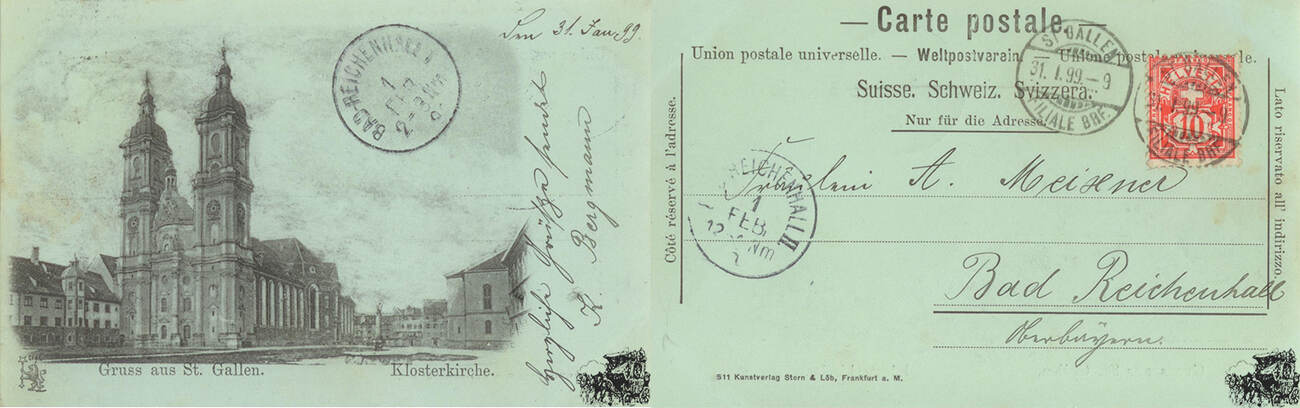 Den 31. Jan. 99.
BAD REICHENHALL I
1
FEB
2-3 Nm
Herzliche Grüsse sendet
K. Bergmann
Gruss aus St. Gallen.
Klosterkirche.
— Carte postale. —
Union postale universelle. — Weltpostverein. — Unione postale universale.
Suisse. Schweiz. Svizzera.
Nur für die Adresse.
Côté réservé à l'adresse.
Lato riservato all' indirizzo.
ST. GALLEN
31. I. 99.-9
FILIALE BHF.
HELVETIA
10
31. I. 99.
FILIALE BHF.
REICHENHALL II
1
FEB.
Nm
Fräulein A. Meixner
Bad Reichenhall
Oberbayern.
S11 Kunstverlag Stern & Löb, Frankfurt a. M.